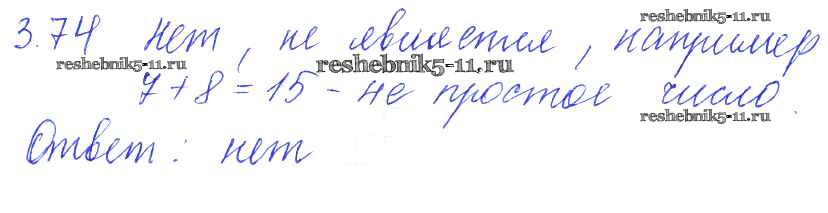 reshebnik5-11.ru
3.74 Нет, не является, например
reshebnik5-11.ru reshebnik5-11.ru
7+8=15 - не простое число
reshebnik5-11.ru
Ответ: нет